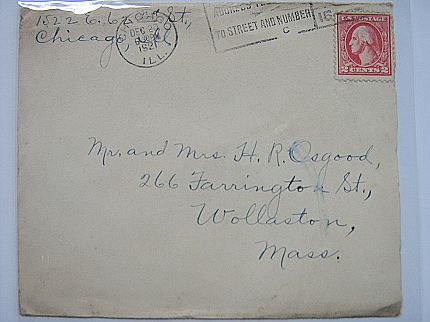 1522 E. 67 St.,
Chicago
CHICAGO
DEC
1921
ILL.
TO STREET AND NUMBER
U.S. POSTAGE
2 CENTS 2
Mr. and Mrs. H. R. Osgood,
266 Farrington St.,
Wollaston,
Mass.